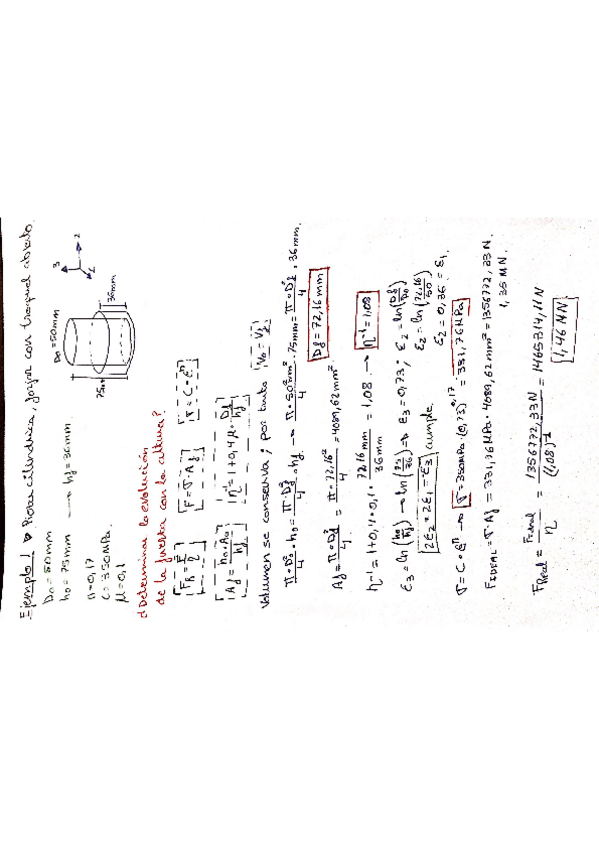 Ejemplo 1 → Pieza cilíndrica, forjar con troquel abierto.
D₀ = 50mm
h₀ = 75mm → hf = 36mm
n = 0,17
C = 350MPa
μ = 0,1
D₀ = 50mm
75mm
36mm
3
2
1
¿Determinar la evolución
de la fuerza con la altura?
F = σ · Af
σ = C · εⁿ
η⁻¹ = 1 + 0,4 μ · Df/hf
Volumen se conserva; por tanto V₀ = Vf
π · D₀²/4 · h₀ = π · Df²/4 · hf → π · 50²mm²/4 · 75mm = π · Df²/4 · 36mm.
Df = 72,16mm
Af = π · Df²/4 = π · 72,16²/4 = 4089,62mm²
η⁻¹ = 1 + 0,4 · 0,1 · 72,16mm/36mm = 1,08 → η⁻¹ = 1,08
ε₃ = ln(h₀/hf) → ln(75/36) → ε₃ = 0,73; ε₂ = ln(Df/D₀)
ε₂ = ln(72,16/50)
2ε₂ = 2ε₁ = -ε₃ cumple. ε₂ = 0,36 = ε₁
σ = C · εⁿ → σ = 350MPa (0,73)^0,17 = 331,76MPa
FIDEAL = σ · Af = 331,76MPa · 4089,62mm² = 1356772,33N.
1,35 MN.
FReal = Fideal/η = 1356772,33N/(1,08)⁻¹ = 1465314,11N
1,46 MN